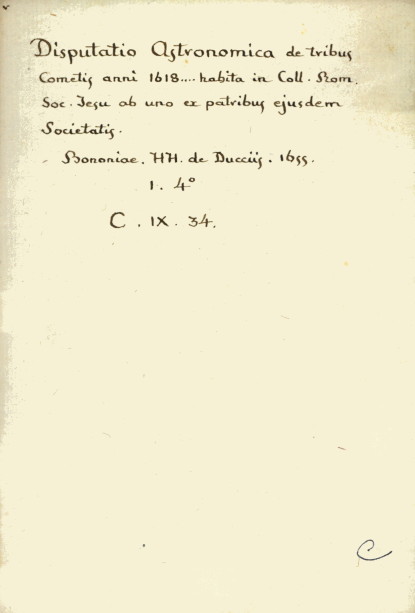 Disputatio Astronomica de tribus
Cometis anni 1618.... habita in Coll. Rom.
Soc. Jesu ab uno ex patribus ejusdem
Societatis.
Bononiae. HH. de Ducciis. 1655.
1. 4°
C. IX. 34.
C